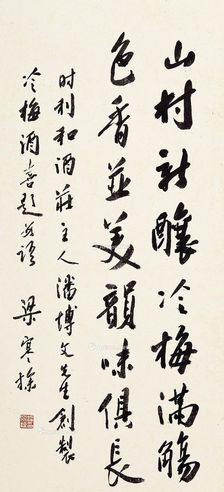 山村新釀冷梅滿觴
色香並美韻味俱長
时利和酒莊主人潘博文先生創製
冷梅酒喜題如語
梁寒操